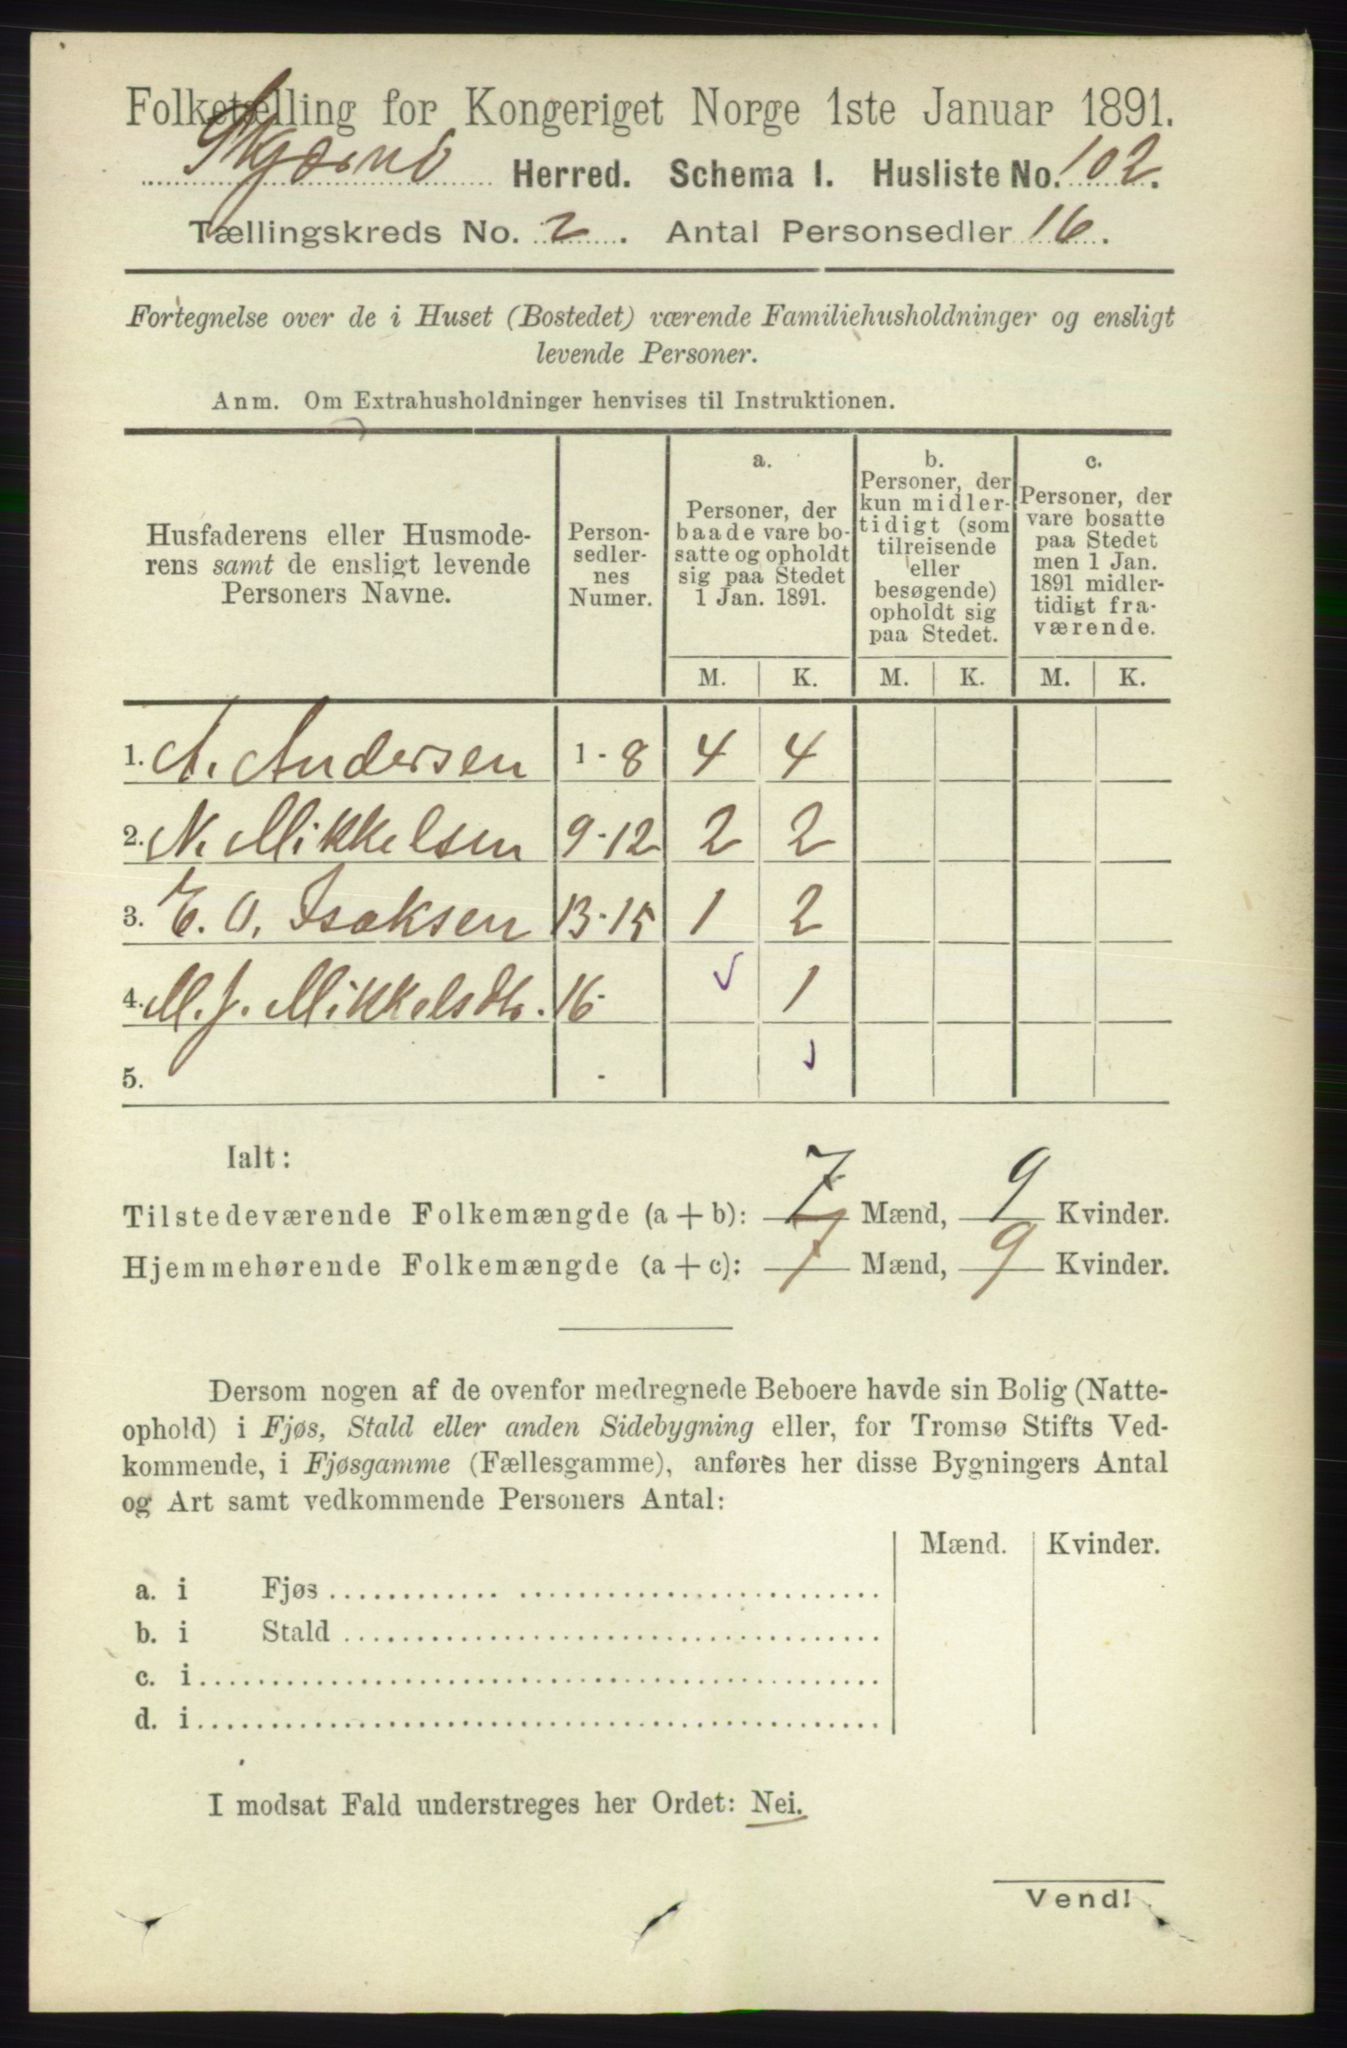 Folketælling for Kongeriget Norge 1ste Januar 1891.
Skjærvø Herred. Schema I. Husliste No. 102.
Tællingskreds No. 2. Antal Personsedler 16.
Fortegnelse over de i Huset (Bostedet) værende Familiehusholdninger og ensligt
levende Personer.
Anm. Om Extrahusholdninger henvises til Instruktionen.
Husfaderens eller Husmode-
rens samt de ensligt levende
Personers Navne.
Person-
sedler-
nes
Numer.
a.
Personer, der
baade vare bo-
satte og opholdt
sig paa Stedet
1 Jan. 1891.
b.
Personer, der
kun midler-
tidigt (som
tilreisende
eller
besøgende)
opholdt sig
paa Stedet.
c.
Personer, der
vare bosatte
paa Stedet
men 1 Jan.
1891 midler-
tidigt fra-
værende.
M. K. M. K. M. K.
1. A. Andersen 1 - 8 4 4
2. N. Mikkelsen 9-12 2 2
3. E. O. Isaksen 13-15 1 2
4. M. J. Mikkelsdtr. 16- 1
5. -
Ialt:
Tilstedeværende Folkemængde (a + b): 7 Mænd, 9 Kvinder.
Hjemmehørende Folkemængde (a + c): 7 Mænd, 9 Kvinder.
Dersom nogen af de ovenfor medregnede Beboere havde sin Bolig (Natte-
ophold) i Fjøs, Stald eller anden Sidebygning eller, for Tromsø Stifts Ved-
kommende, i Fjøsgamme (Fællesgamme), anføres her disse Bygningers Antal
og Art samt vedkommende Personers Antal:
Mænd. Kvinder.
a. i Fjøs
b. i Stald
c. i
d. i
I modsat Fald understreges her Ordet: Nei.
Vend!